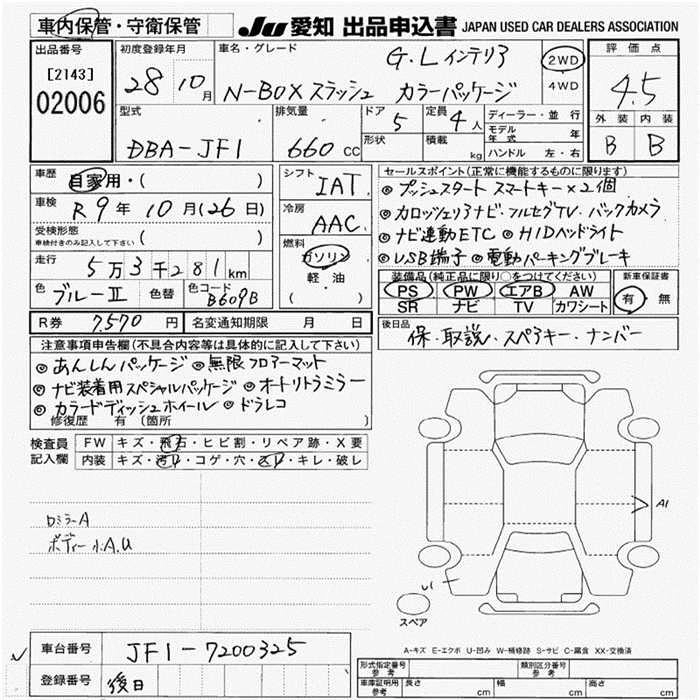 車内保管・守衛保管 JU 愛知 出品申込書 JAPAN USED CAR DEALERS ASSOCIATION
出品番号 初度登録年月 車名・グレード 評価点
[2143] 28 10月 G・Lインテリア 2WD 4.5
02006 N-BOXスラッシュ カラーパッケージ 4WD
型式 排気量 ドア 5 定員 4人 ディーラー・並行 外装 内装
DBA-JF1 660cc 形状 積載 kg モデル年式 年 B B
ハンドル 左・右
車歴 自家用・( ) シフト IAT セールスポイント(正常に機能するものに限ります)
車検 R9年10月(26日) 冷房 AAC ◎プッシュスタート スマートキー×2個
受検形態 ◎カロッツェリアナビ・フルセグTV・バックカメラ
車検付きのみ記入して下さい ( ) 燃料 ガソリン ◎ナビ連動ETC ◎HIDヘッドライト
走行 5万3千281km 軽・油 ◎USB端子 ◎電動パーキングブレーキ
色 ブルーⅡ 色替 色コード B609B ( ) 装備品(純正品に限り○をつけてください) 新車保証書
PS PW エアB AW 有・無
SR ナビ TV カワシート
R券 7,570円 名変通知期限 月 日 後日品
保・取説・スペアキー・ナンバー
注意事項申告欄(不具合内容等は具体的に記入して下さい)
◎あんしんパッケージ ◎無限フロアーマット
◎ナビ装着用スペシャルパッケージ ◎オートリトラミラー
◎カラードディッシュホイール ◎ドラレコ
修復歴 有 (箇所 )
検査員 FW キズ・飛石・ヒビ割・リペア跡・X要
記入欄 内装 キズ・汚れ・コゲ・穴・スレ・キレ・破レ
A1
ロミラーA
ボディー小A.U
U1
スペア
A-キズ E-エクボ U-凹み W-補修跡 S-サビ C-腐食 XX-交換済
車台番号 JF1-7200325
登録番号 後日
形式指定番号 参考 類別区分番号 参考
車庫証明用 参考 長さ cm 幅 cm 高さ cm